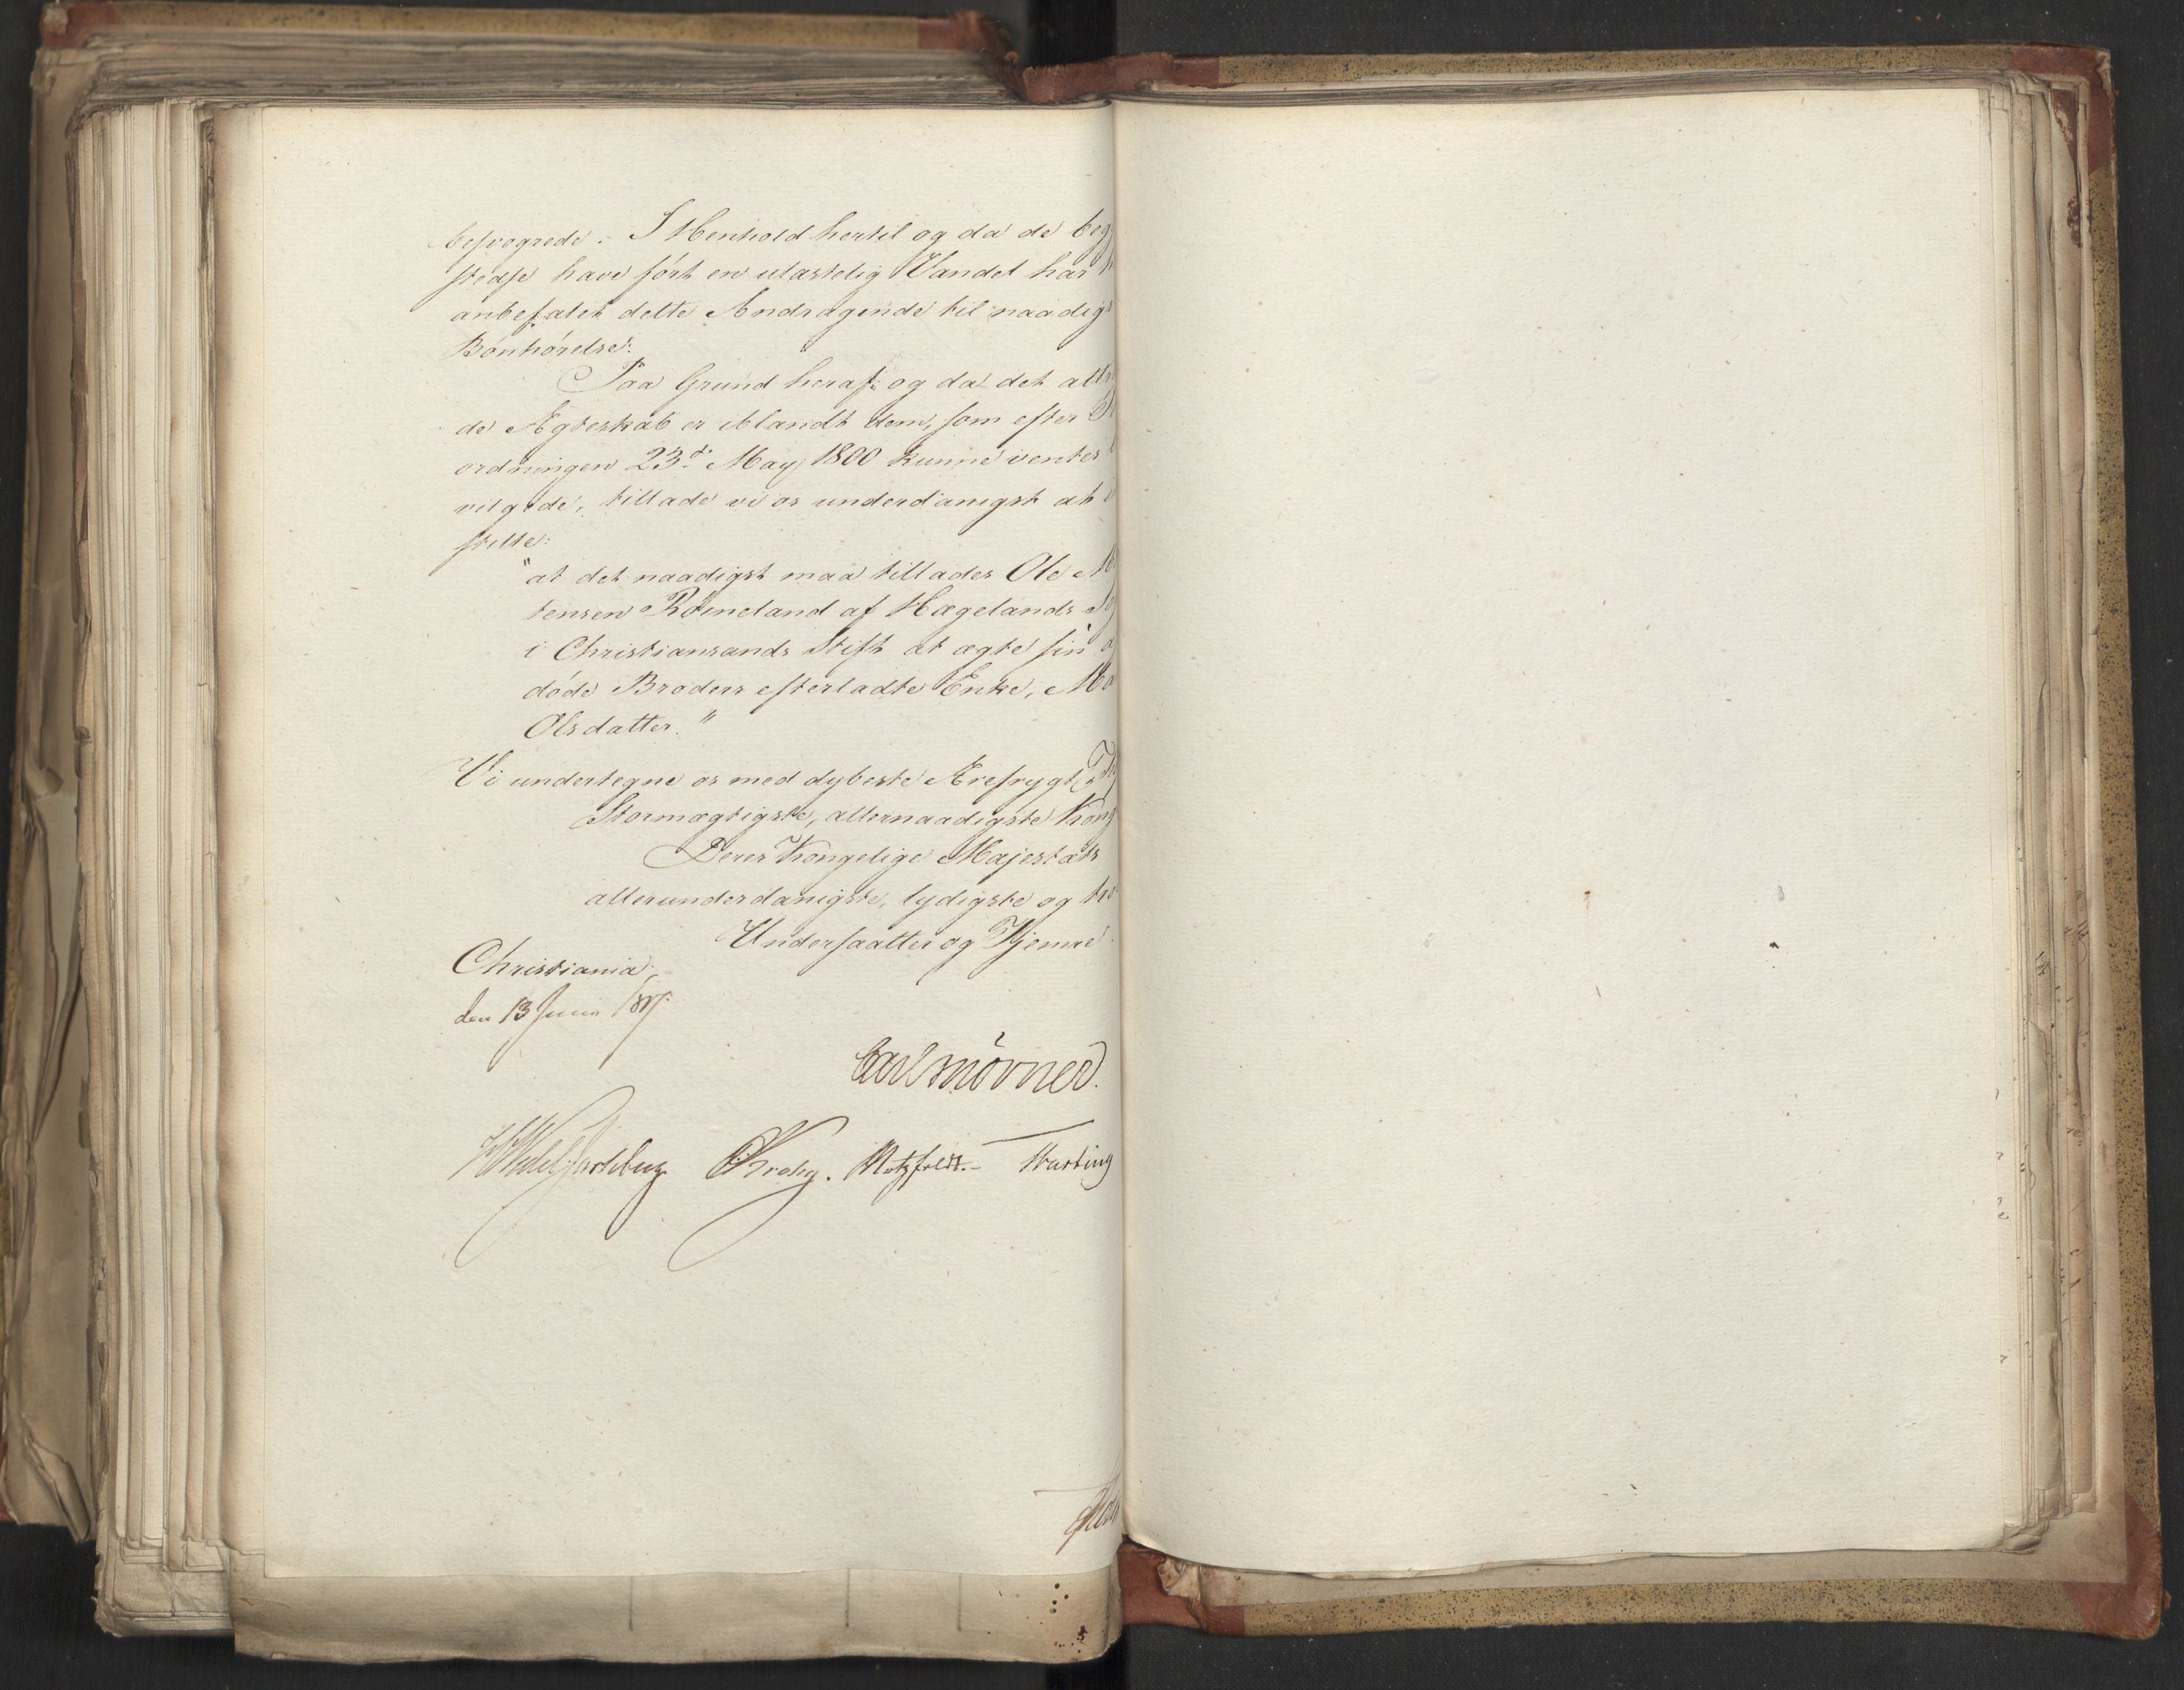 besvogrede. I Henhold hertil og da de beg
stedse have ført en ulastelig Vandel har
anbefalet dette Andragende til naadigs
Bønhørelse.
Paa Grund heraf og da det attr
de Ægteskab er iblandt dem, som efter
ordningen 23d: May 1800 kunne ventes
vilgede, tillade vi os underdanigst at
stille:
"at det naadigst maa tillades Ole M
tensen Røineland af Hægelands So
i Christiansands Stift at ægte sin a
døde Broders efterladte Enke, Ma
Olsdatter."
Vi undertegne os med dybeste Ærefrygt
Stormægtigste, allernaadigste Kong
Deres Kongelige Majestæts
allerunderdanigste, lydigste og tro
Undersaatter og Tjenere.
Christiania
den 13 Junii 1817.
Carl Mörner.
Krohg. Motzfeldt.- Hasting